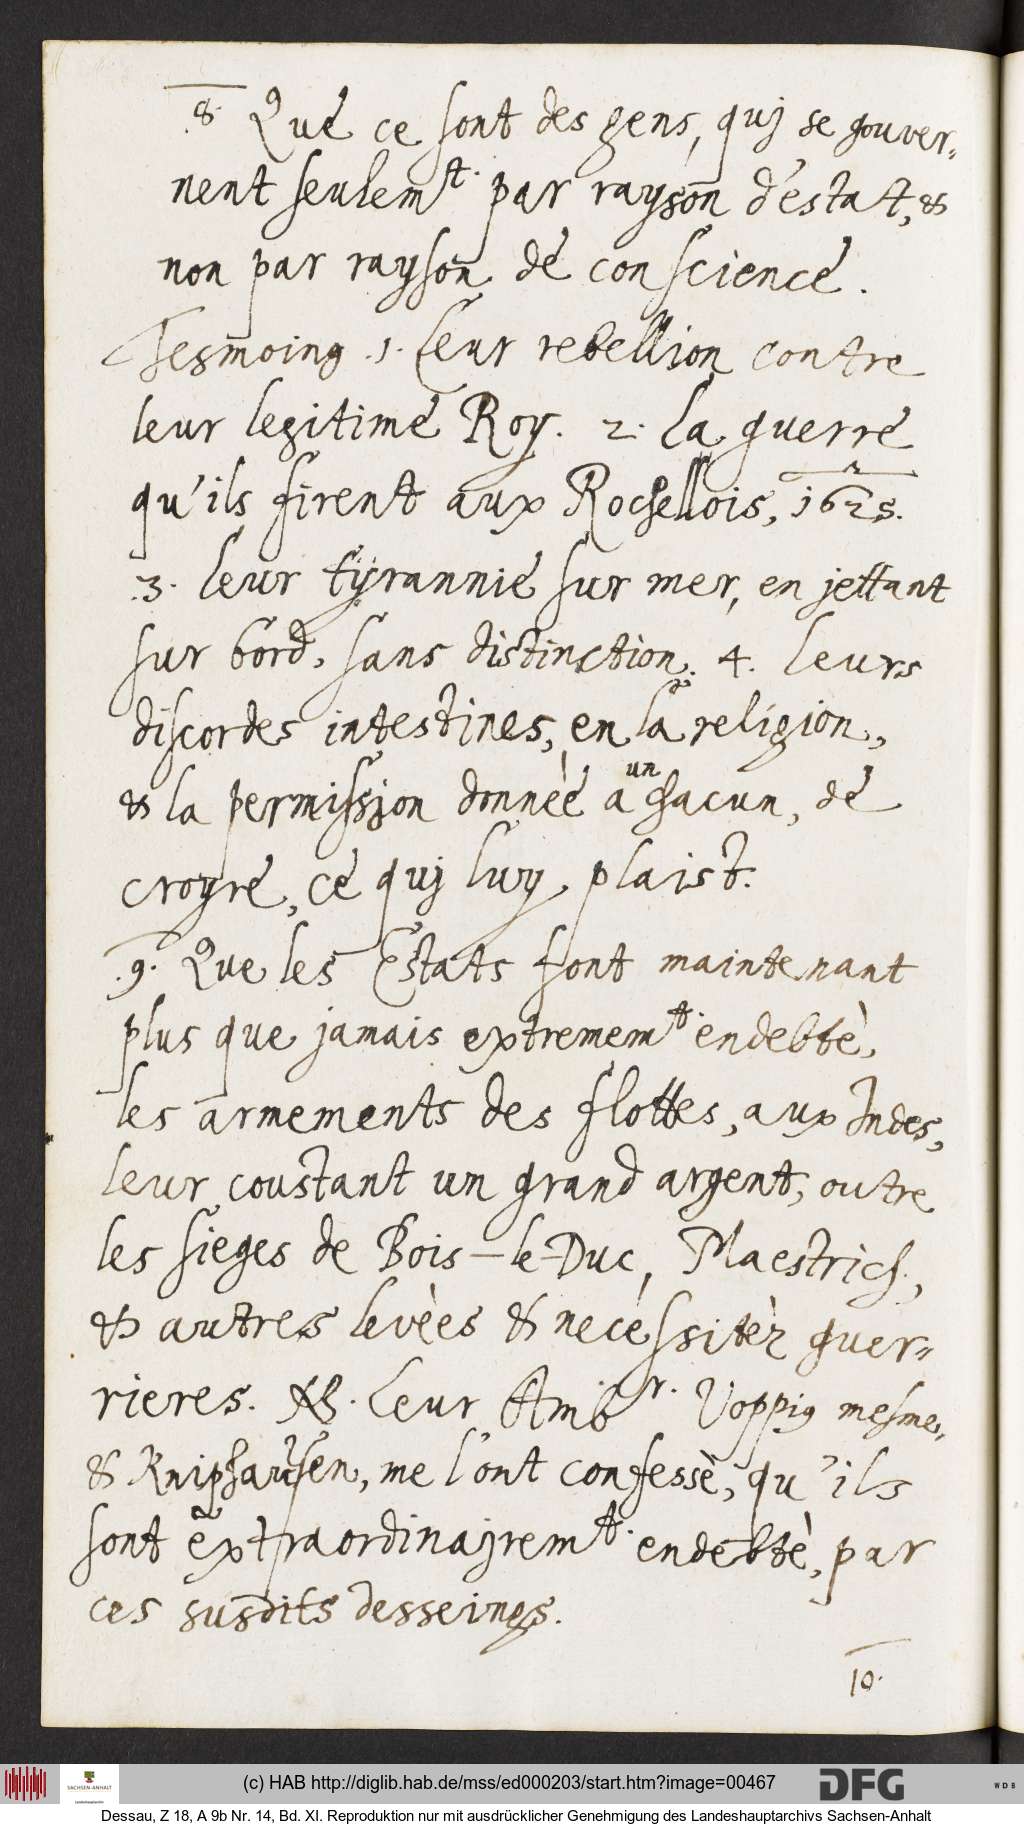 8. Que ce sont des gens, quj se gouver-
nent seulem.t par rayson d'estat, &
non par rayson de conscience.
Tesmoing .1. leur rebellion contre
leur legitime Roy. 2. La guerre
qu'ils firent aux Rochellois, 1625.
3. leur tÿrannie sur mer, en jettant
sur bord, sans distinction. 4. leurs
discordes intestines, en la religion,
& la permissjon donnèe a un chacun, de
croyre, ce quj luy, plaist.
.9. Que les Estats sont maintenant
plus que jamais extremem.t endebtè,
les armements des flottes, aux Indes,
leur coustant un grand argent, outre
les sieges de Bois-le-Duc, Maestrich,
& autres levèes & necessitèz guer-
rieres. NB. Leur Amb.r Voppiq mesme,
& Kniphausen, me l'ont confessè, qu'ils
sont extraordinajrem.t endebtè, par
ces susdits desseings.
10.
(c) HAB http://diglib.hab.de/mss/ed000203/start.htm?image=00467
SACHSEN-ANHALT
DFG
WDB
Dessau, Z 18, A 9b Nr. 14, Bd. XI. Reproduktion nur mit ausdrücklicher Genehmigung des Landeshauptarchivs Sachsen-Anhalt